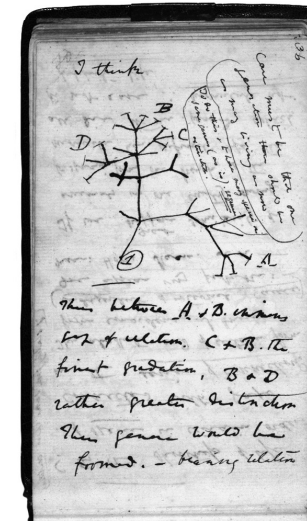 36
I think
Case must be that one
generation then should be
as many living as now
To do this & to have many species in
same genus (as is) requires
extinction
B
C
D
A
1
Thus between A. & B. immens
gap of relation. C & B. the
finest gradation, B & D
rather greater distinction
Thus genera would be
formed. — bearing relation